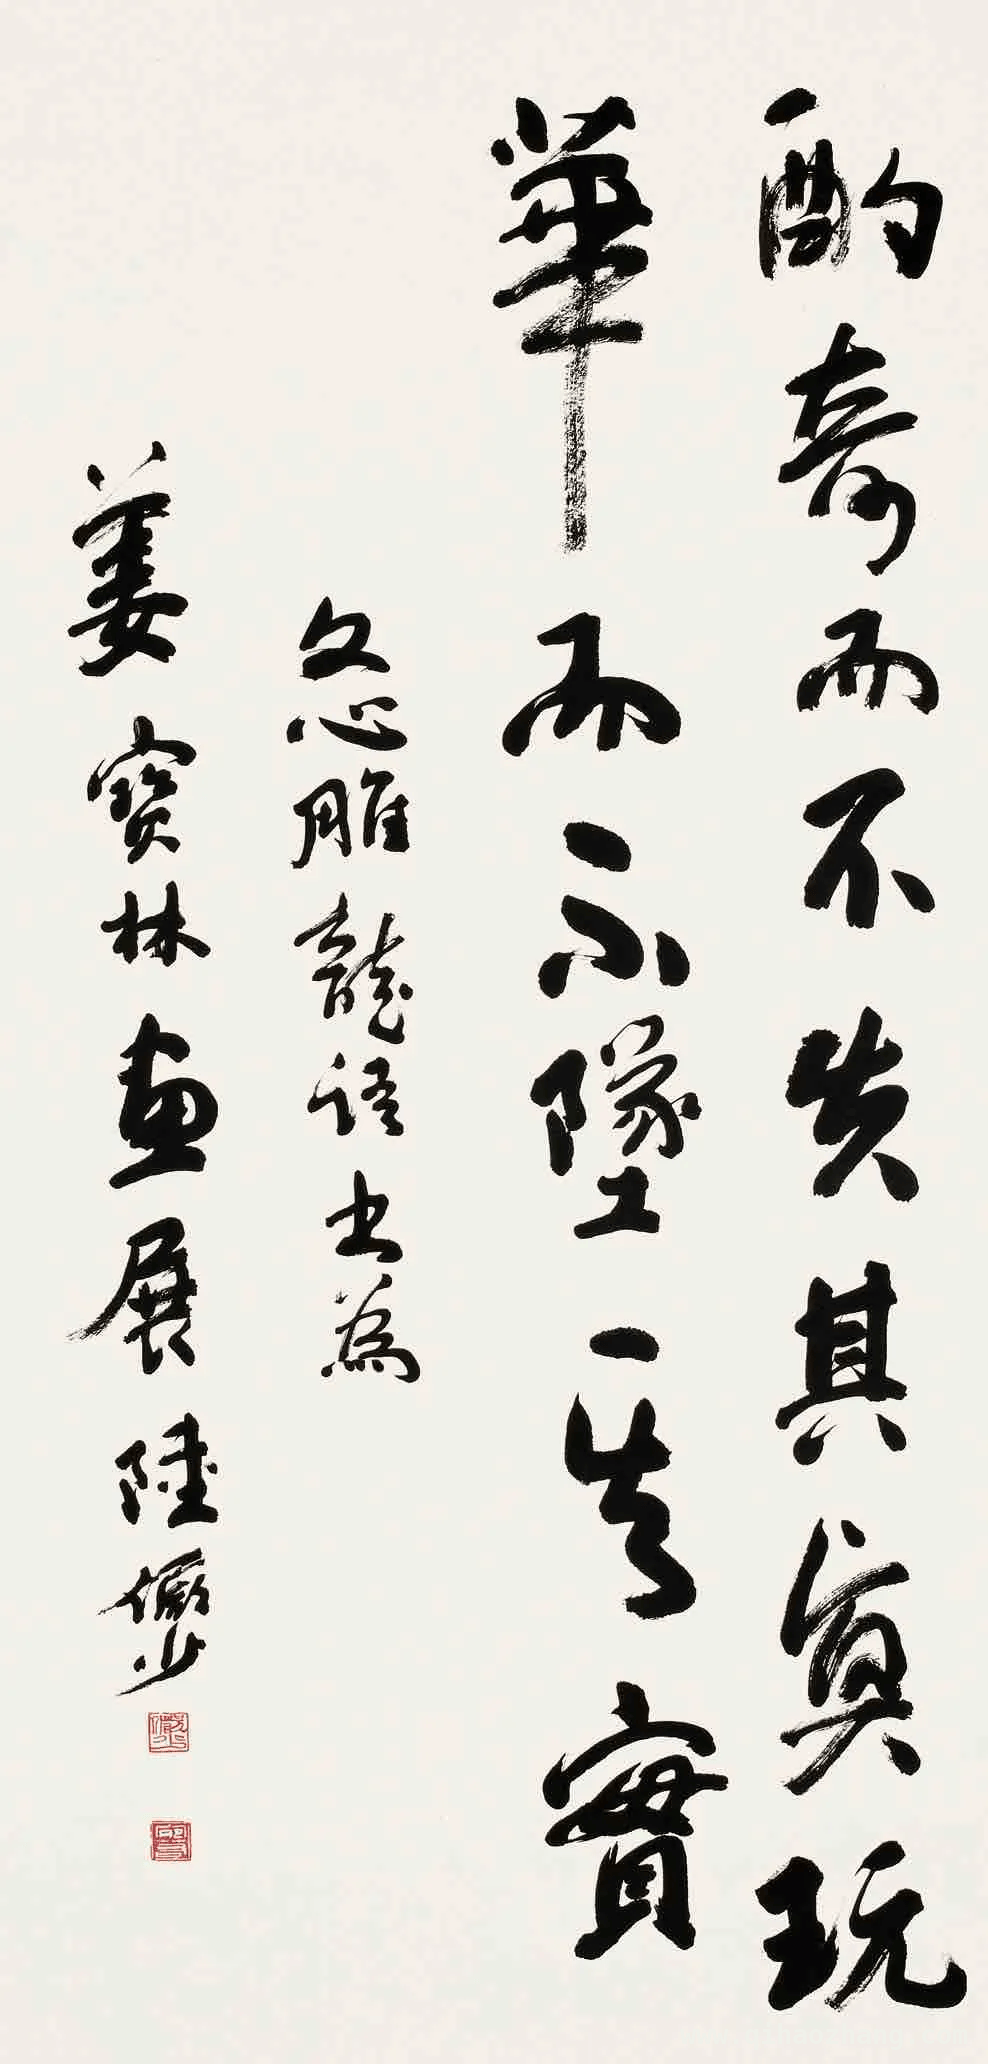 酌奇而不失其貞玩
華而不墜其實
文心雕龍語書為
姜寶林畫展陸儼少